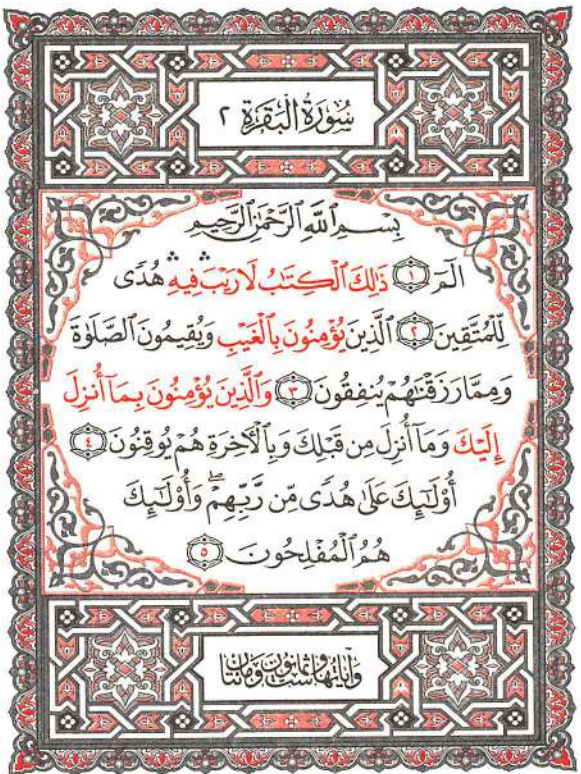 سُورَةُ الْبَقَرَةِ ٢
بِسْمِ ٱللَّهِ ٱلرَّحْمَٰنِ ٱلرَّحِيمِ
الٓمٓ ١ ذَٰلِكَ ٱلْكِتَٰبُ لَا رَيْبَ ۛ فِيهِ ۛ هُدًى
لِّلْمُتَّقِينَ ٢ ٱلَّذِينَ يُؤْمِنُونَ بِٱلْغَيْبِ وَيُقِيمُونَ ٱلصَّلَوٰةَ
وَمِمَّا رَزَقْنَٰهُمْ يُنفِقُونَ ٣ وَٱلَّذِينَ يُؤْمِنُونَ بِمَآ أُنزِلَ
إِلَيْكَ وَمَآ أُنزِلَ مِن قَبْلِكَ وَبِٱلْأٓخِرَةِ هُمْ يُوقِنُونَ ٤
أُو۟لَٰٓئِكَ عَلَىٰ هُدًى مِّن رَّبِّهِمْ ۖ وَأُو۟لَٰٓئِكَ
هُمُ ٱلْمُفْلِحُونَ ٥
وَآيَاتُهَا سِتٌّ وَثَمَانُونَ وَمِائَتَانِ